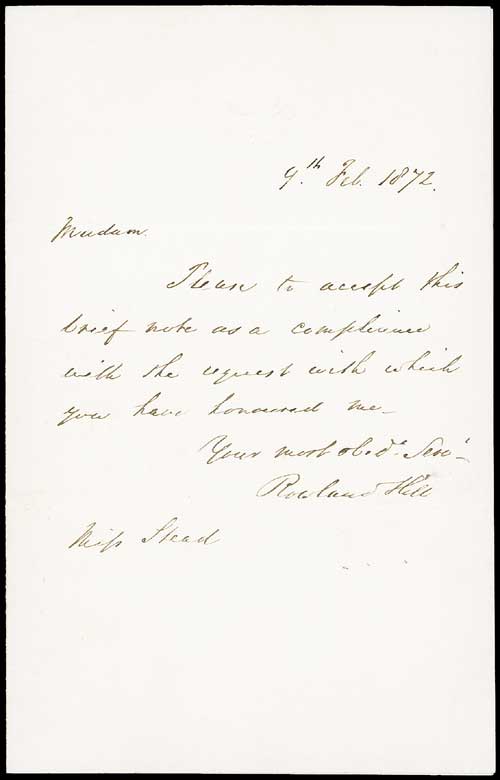 9.th Feb. 1872.
Madam.
Please to accept this
brief note as a compliance
with the request with which
you have honoured me_
Your most obedt. Servt
Rowland Hill
Miss Stead